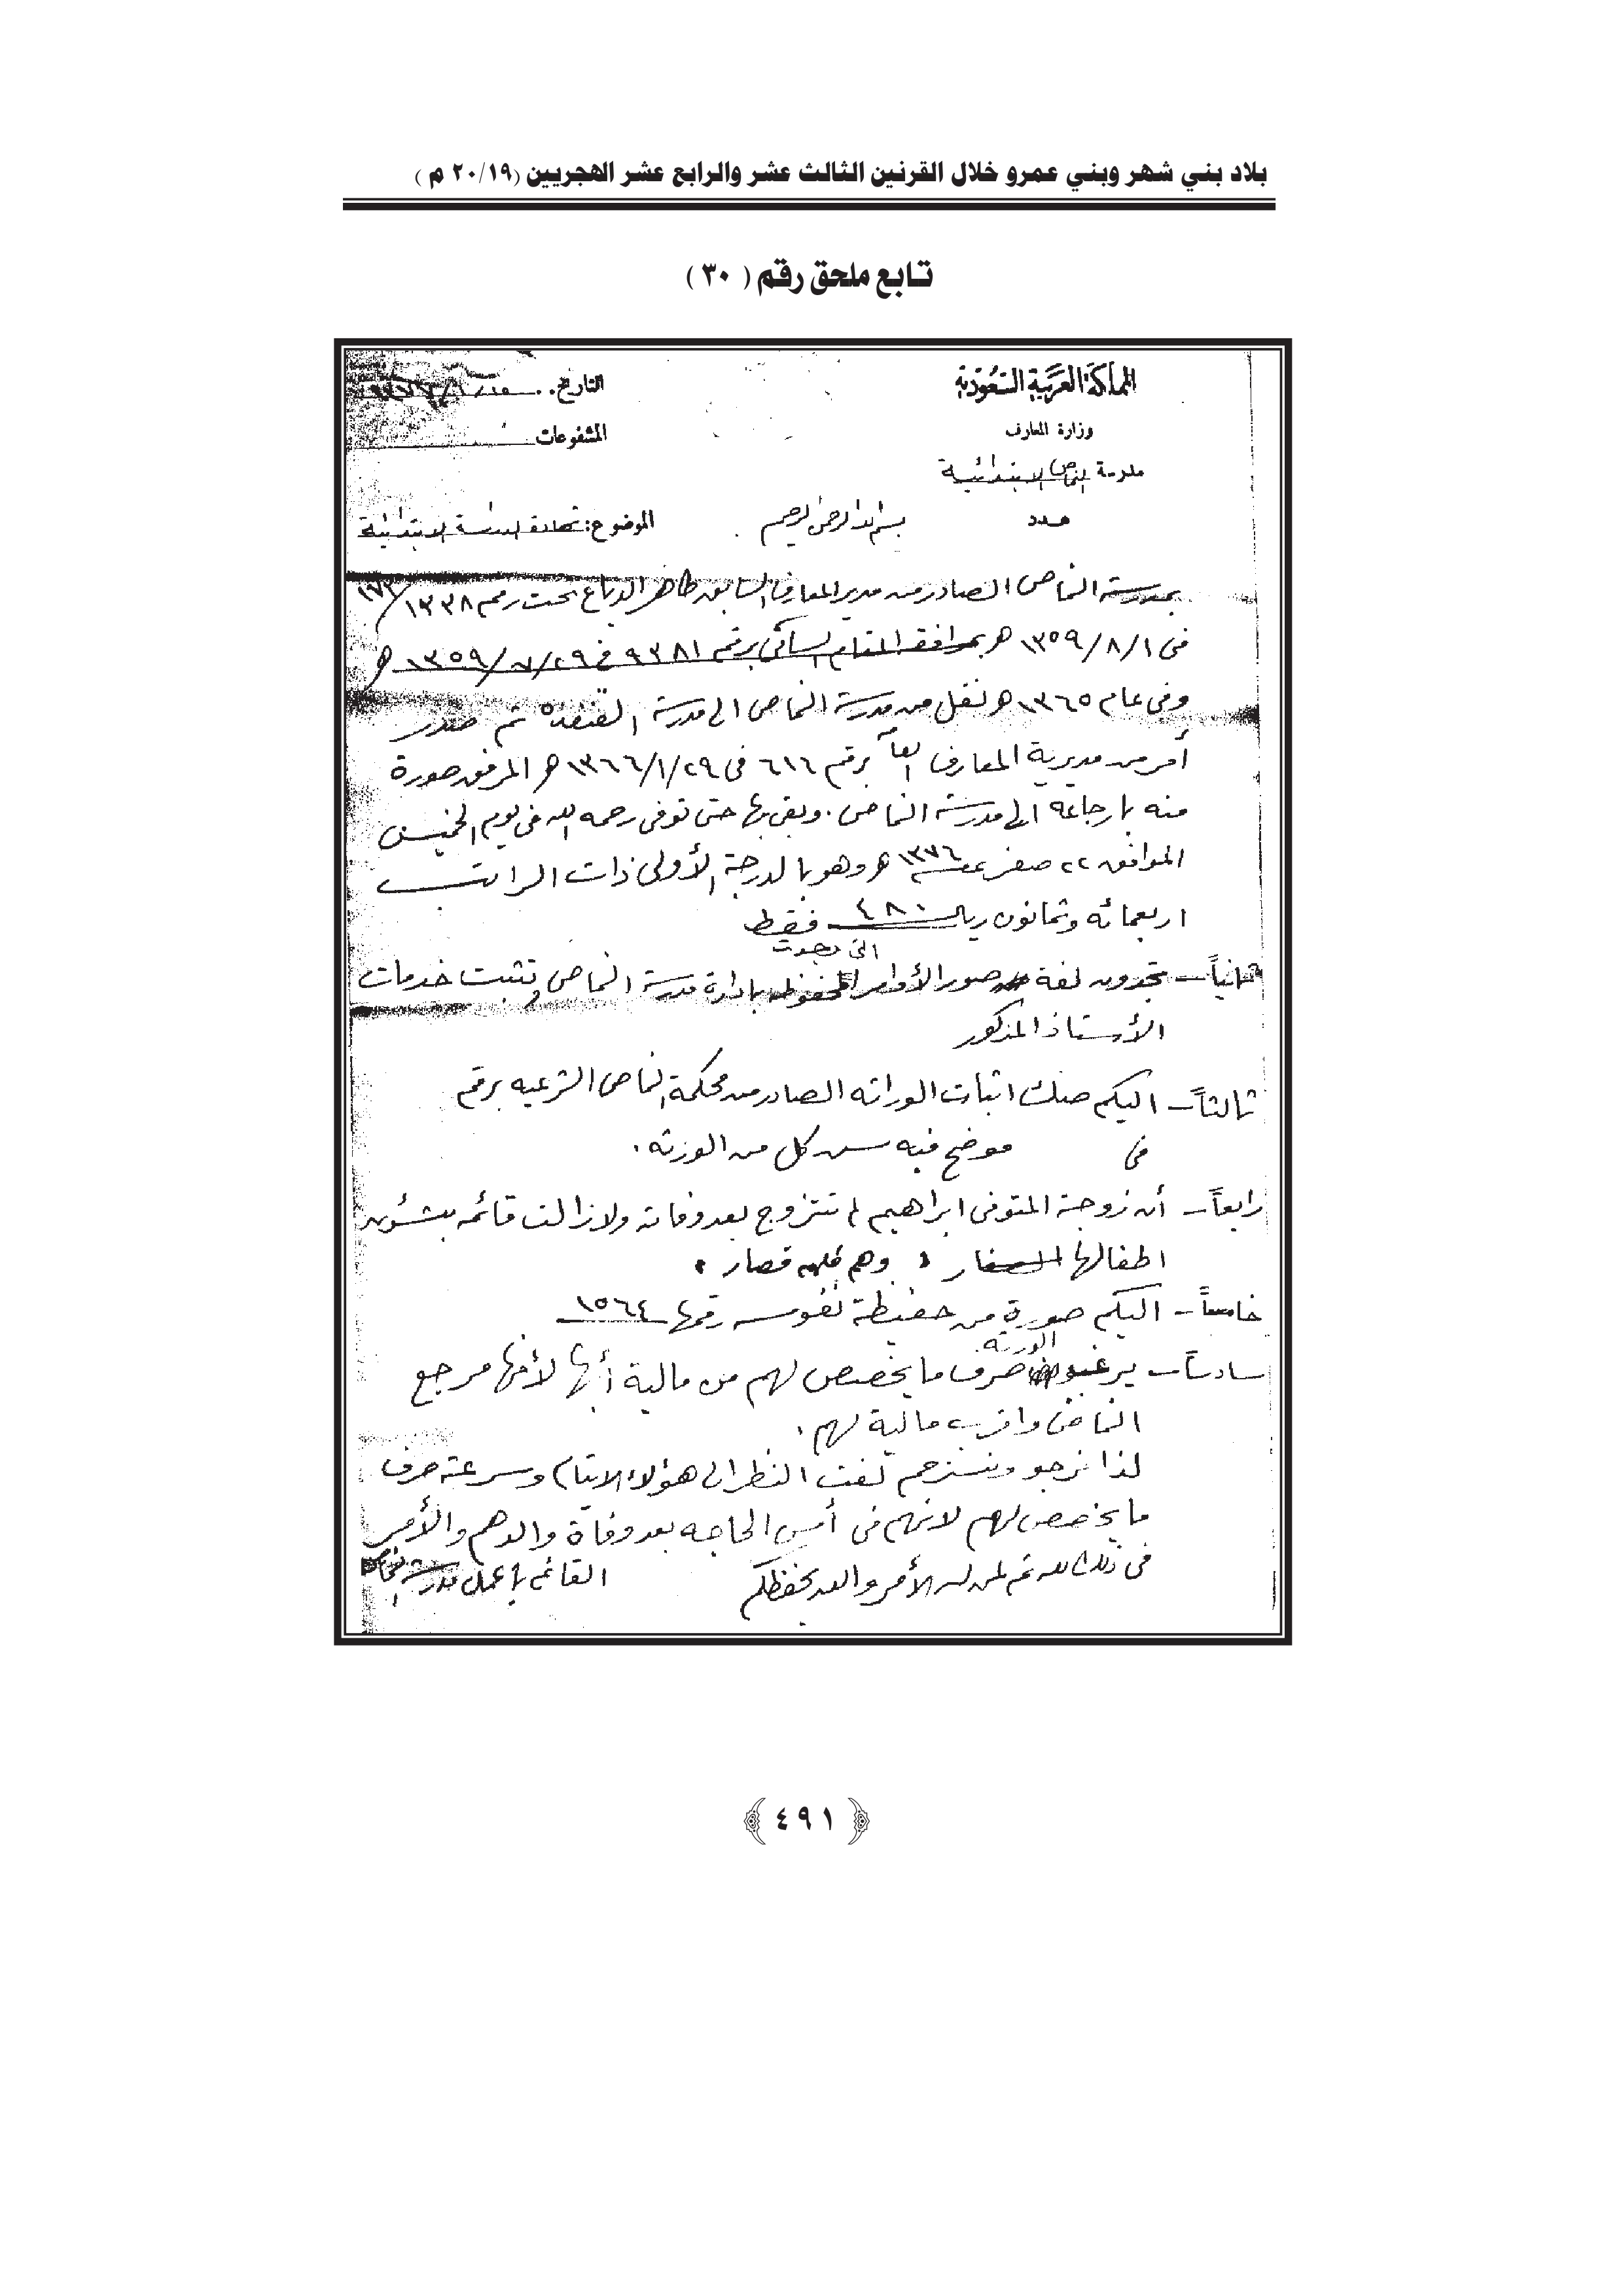 بلاد بني شهر وبني عمرو خلال القرنين الثالث عشر والرابع عشر الهجريين (٢٠/١٩ م )
تـابـع ملحق رقم ( ٣٠ )
المملكة العربية السعودية
التاريخ
وزارة المعارف
المشفوعات
مدرسة النماص الابتدائية
عدد
بسم الله الرحمن الرحيم
الموضوع: شهادة لمدرسة الابتدائية
بمدرسة النماص الصادر من مدير المعارف السابق طاهر الدباغ تحت رقم ١٣٣٨/١٧٣
فى ١/ ٨/ ١٣٥٩ هـ بموافقة المقام السامي برقم ٩٣٨١ في ٢٩/ ٧/ ١٣٥٩ هـ
وفى عام ١٣٦٥ هـ نقل من مدرسة النماص الى مدرسة القنفذة ثم صدر
أمر من مديرية المعارف العامة برقم ٦١٦ فى ٢٩/ ١/ ١٣٦٦ هـ المرفق صورة
منه بارجاعه الى مدرسة النماص . وبقى بها حتى توفى رحمه الله فى يوم الخميس
الموافق ٢٢ صفر عام ١٣٧٦ هـ وهو بالدرجة الأولى ذات الراتب
اربعمائه وثمانون ريال ٤٨٠ فقط
ثانياً - تجدون لفة صور الأوامر التى وجدت المحفوظه بادارة مدرسة النماص وتثبت خدمات
الأستاذ المذكور
ثالثاً - اليكم صك اثبات الوراثه الصادر من محكمة النماص الشرعيه برقم
فى موضح فيه سن كل من الورثه .
رابعاً - أن زوجة المتوفى ابراهيم لم تتزوج بعد وفاته ولازالت قائمه بشئون
اطفالها الصغار وهم قصار
خامساً - اليكم صورة من حفيظة نفوسه رقمها ١٥٦٤
سادساً - يرغبون الورثه صرف ما يخصص لهم من مالية أبها لأنها مرجع
النماص واقرب مالية لهم .
لذا نرجو ونسترحم لفت النظر الى هؤلاء الايتام وسرعة صرف
ما يخصص لهم لانهم فى أمس الحاجه بعد وفاة والدهم والأمر
فى ذلك لله ثم لمن له الأمر والله يحفظكم
القائم بأعمال مدرسة النماص
٤٩١